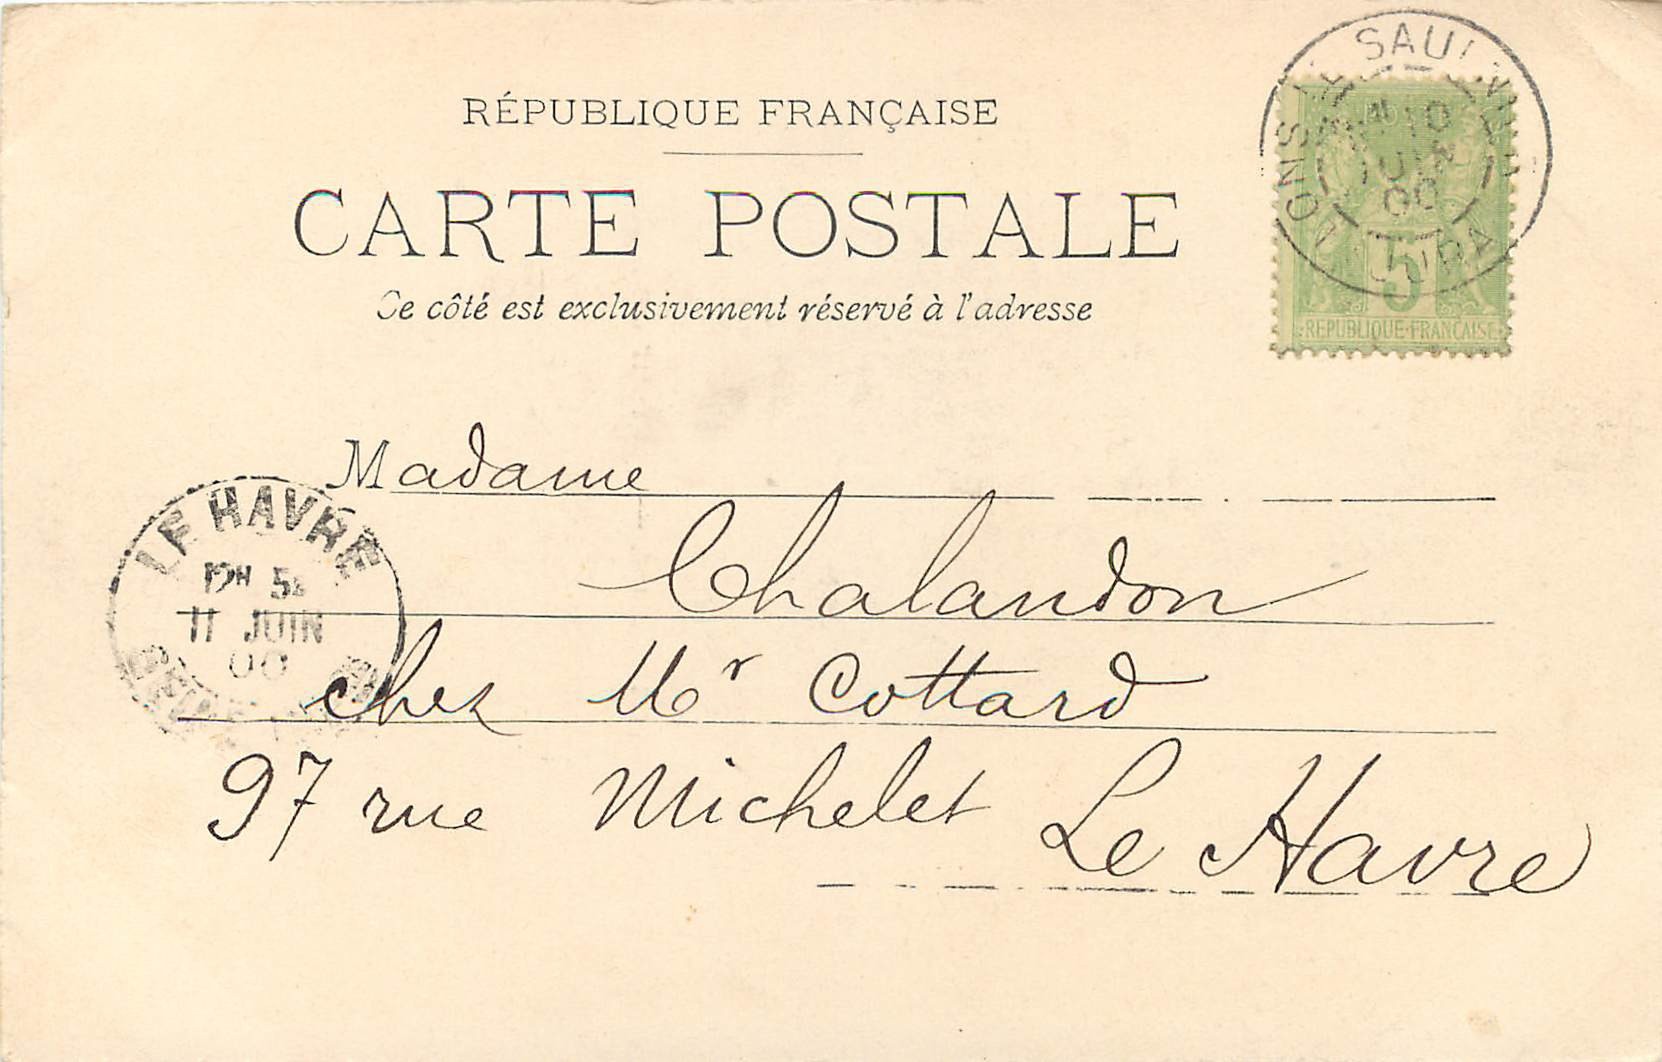 RÉPUBLIQUE FRANÇAISE
CARTE POSTALE
Ce côté est exclusivement réservé à l'adresse
LONS LE SAUNIER
10
JUIN
00
JURA
5
REPUBLIQUE FRANÇAISE
Madame
Chalandon
LE HAVRE
11 JUIN
00
chez Mr Cottard
97 rue Michelet
Le Havre